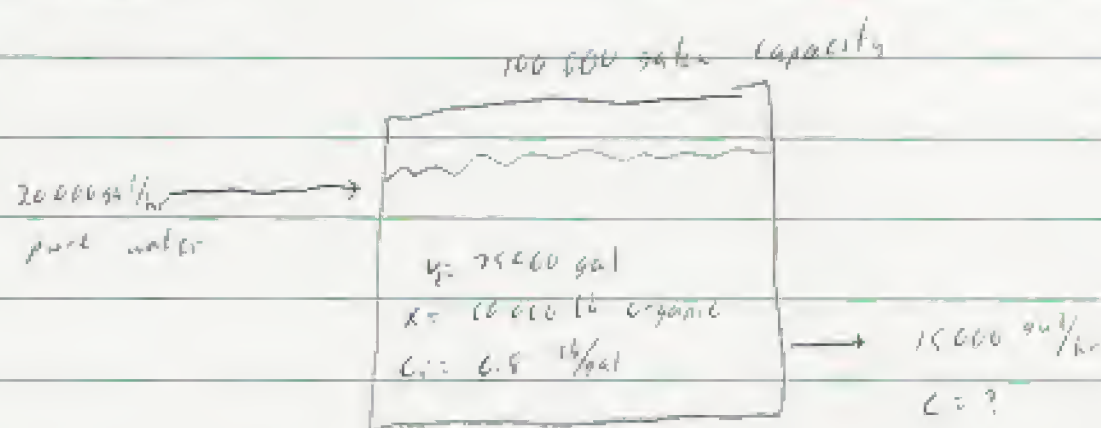 100 000 gallon capacity
20 000 gal/hr
pure water
V= 75000 gal
X= 60 000 lb organic
Ci= 0.8 lb/gal
15 000 gal/hr
C = ?